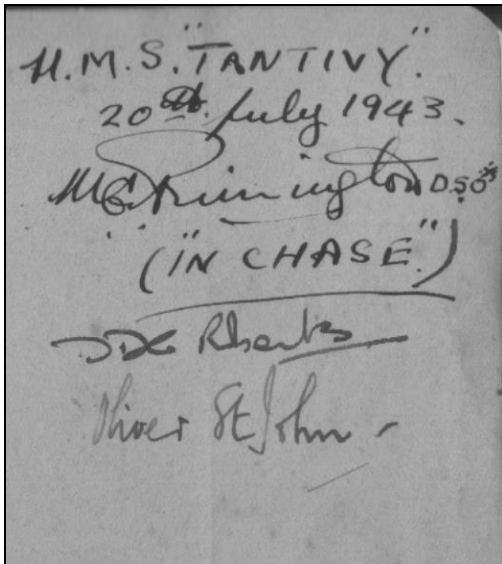 H.M.S. "TANTIVY".
20th July 1943.
M G Rimington DSO*
("IN CHASE".)
Roberts
Oliver St John -